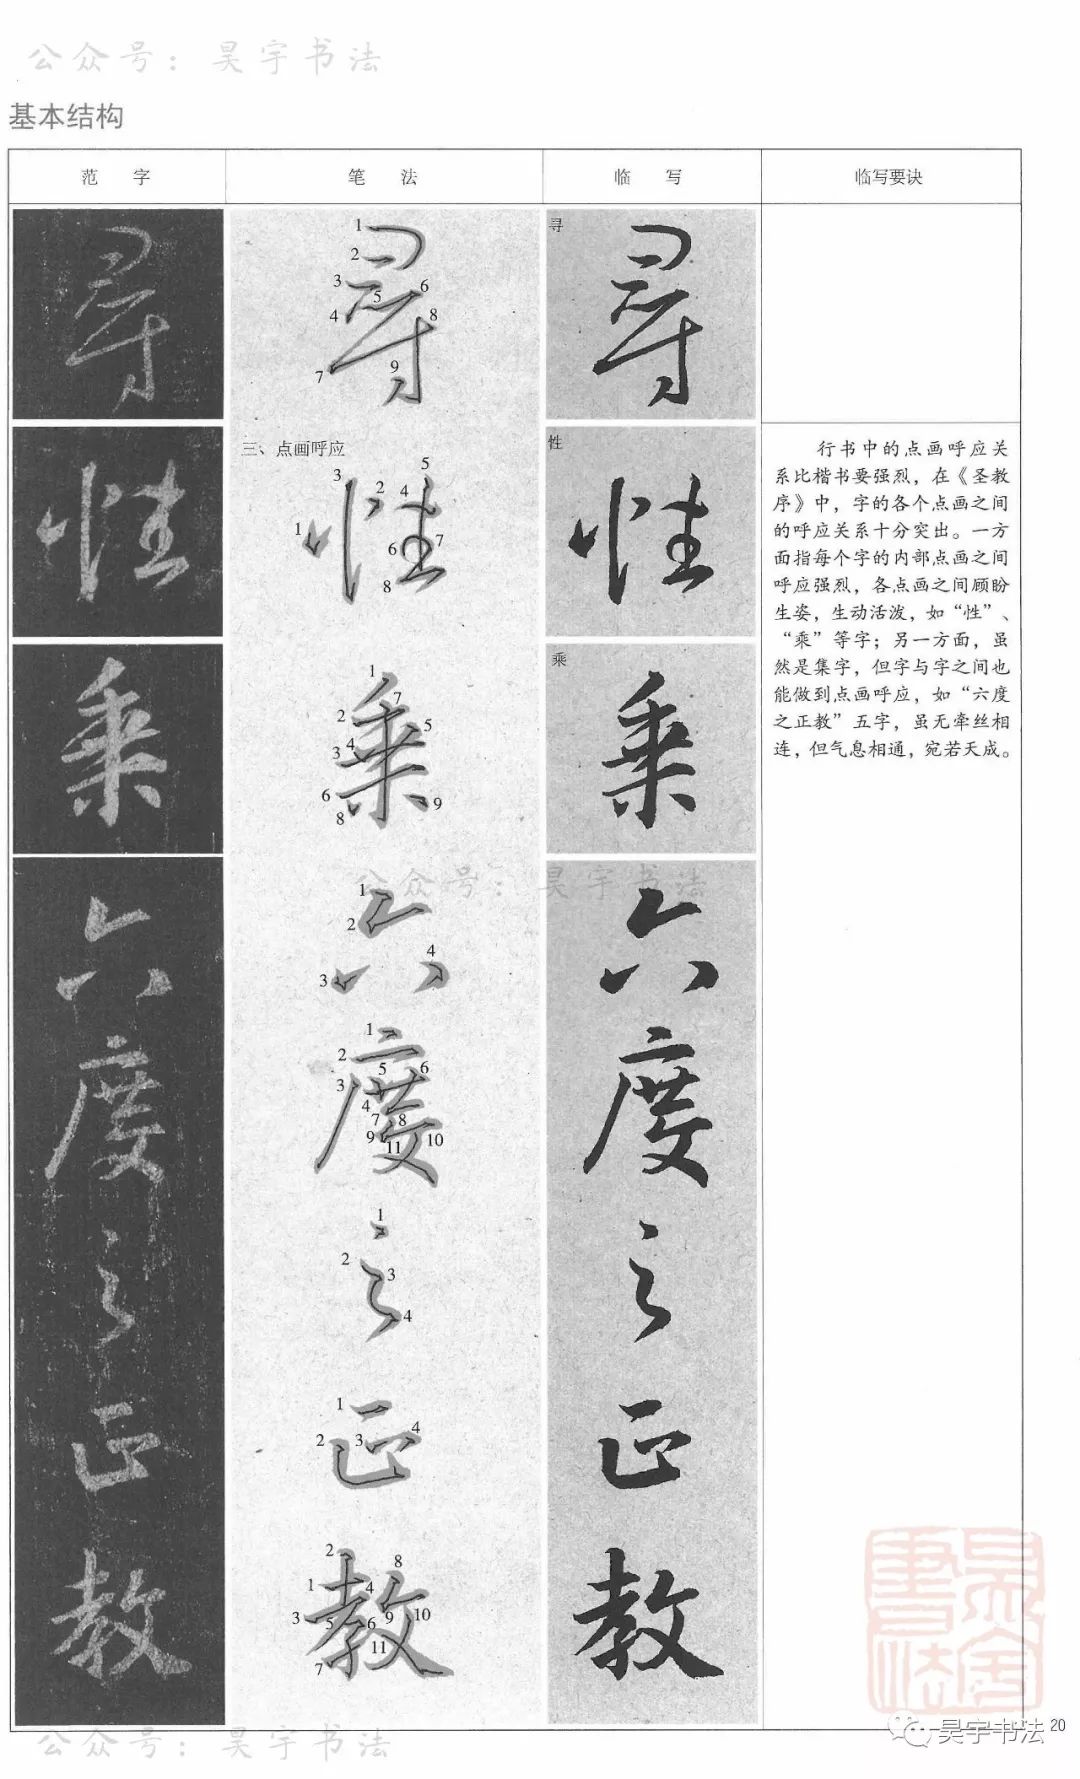 公众号：昊宇书法
基本结构
范 字
笔 法
临 写
临写要诀
尋
1
2
3
5
6
4
8
7
9
寻
尋
性
三、点画呼应
3
2
4
5
1
6
7
8
性
性
行书中的点画呼应关
系比楷书要强烈，在《圣教
序》中，字的各个点画之间
的呼应关系十分突出。一方
面指每个字的内部点画之间
呼应强烈，各点画之间顾盼
生姿，生动活泼，如“性”、
“乘”等字；另一方面，虽
然是集字，但字与字之间也
能做到点画呼应，如“六度
之正教”五字，虽无牵丝相
连，但气息相通，宛若天成。
乘
1
7
2
5
4
3
6
8
9
乘
乘
公众号：昊宇书法
六
度
之
正
教
1
2
4
3
1
2
5
6
3
4
7
8
9
11
10
1
2
3
4
1
2
3
4
2
8
1
4
3
5
6
9
10
11
7
六
度
之
正
教
昊宇书法
公众号：昊宇书法
昊宇书法
20